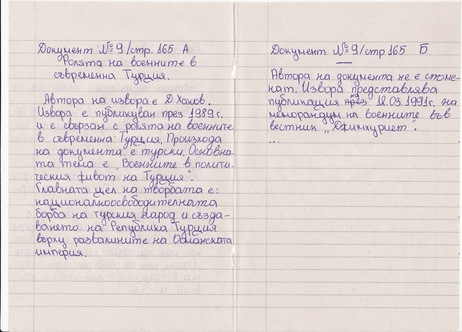 Документ №9/стр. 165 А
Ролята на военните в
съвременна Турция.
Автора на извора е Д. Хаков.
Извора е публикуван през 1989г.
и е свързан с ролята на военните
в съвременна Турция. Произхода
на документа е турски. Основна-
та тема е „Военните в полити-
ческия живот на Турция".
Главната цел на творбата е:
националноосвободителната
борба на турския народ и създа-
ването на Република Турция
върху развалините на Османската
империя.
Документ №9/стр 165 Б
Автора на документа не е споме-
нат. Извора представлява
публикация на 12.03.1991г. на
меморандум на военните във
вестник „Хюмхуриет".
...